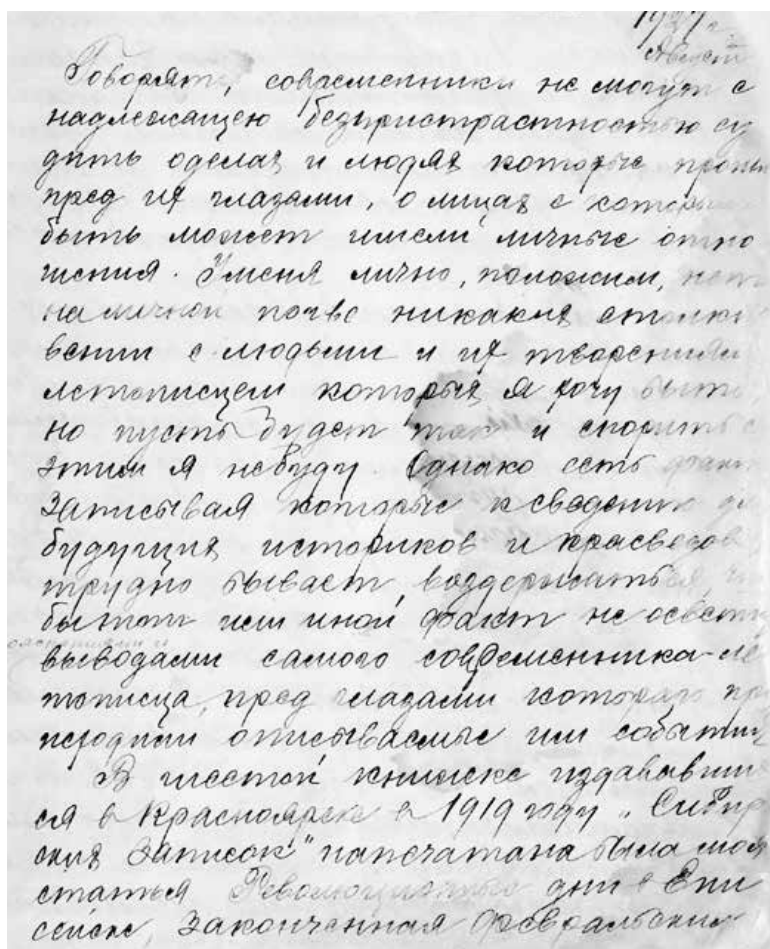 Август
Говорят, современники не могут с
надлежащею безпристрастностью су
дить о делах и людях которые
пред их глазами, о лицах с
быть может имели личные отно
шения. У меня лично, положим, нет
на личной почве никаких столкно
вении с людьми и их творениями
летописцем которых я хочу быть,
но пусть будет так и спорить с
этим я не буду. Однако есть
записывая которые к сведению
будущих историков и краеведов
трудно бывает, воздержаться,
бы тот или иной факт не осветить
выводами самого современника-ле
тописца, пред глазами которого
описываемые им события
В шестой книжке издававши
ся в Красноярске в 1919 году „Сибир
ских Записок" напечатана была моя
статья Революционные дни в Ени
сейске, законченная февральским